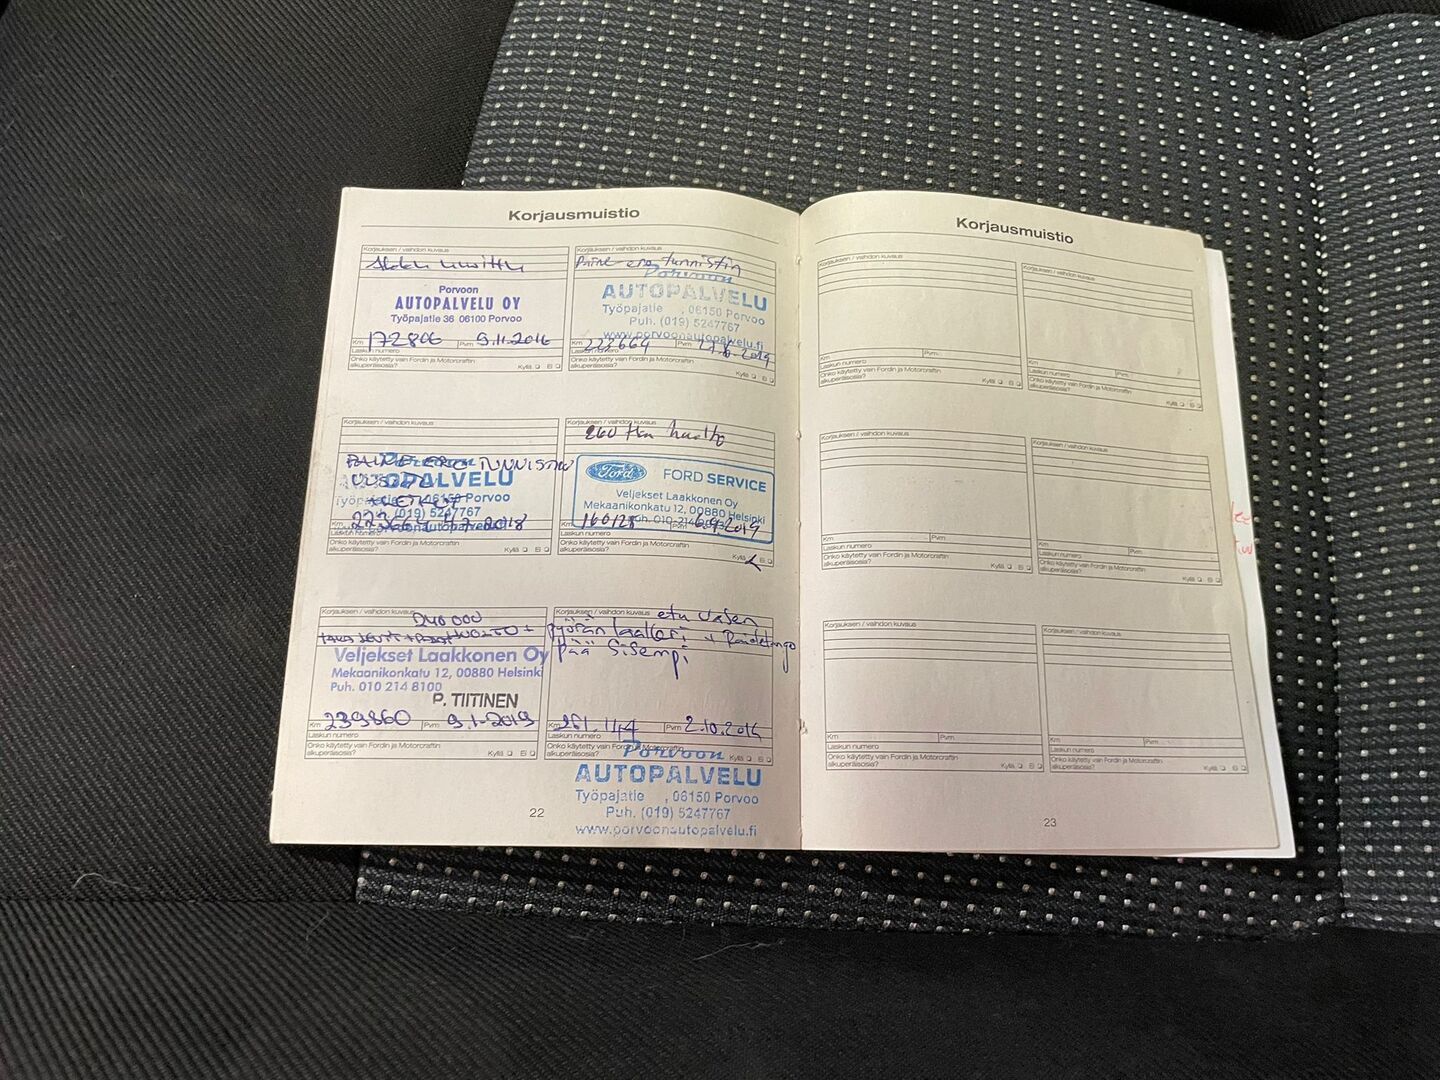 Korjausmuistio
Korjauksen / vaihdon kuvaus
Porvoon
AUTOPALVELU OY
Työpajatie 36 06100 Porvoo
Km 172806 Pvm 9.11.2016
Laskun numero
Onko käytetty vain Fordin ja Motorcraftin
alkuperäisosia? Kyllä Ei
Korjauksen / vaihdon kuvaus
Paine-ero tunnistin
Porvoon
AUTOPALVELU
Työpajatie , 06150 Porvoo
Puh. (019) 5247767
www.porvoonautopalvelu.fi
Km 223664 Pvm
Laskun numero
Onko käytetty vain Fordin ja Motorcraftin
alkuperäisosia? Kyllä Ei
Korjauksen / vaihdon kuvaus
PAINE ERO TUNNISTIN
Porvoon
AUTOPALVELU
Työpajatie , 06150 Porvoo
Puh. (019) 5247767
www.porvoonautopalvelu.fi
Km
Laskun numero
Onko käytetty vain Fordin ja Motorcraftin
alkuperäisosia? Kyllä Ei
Korjauksen / vaihdon kuvaus
260 tkm huolto
Ford FORD SERVICE
Veljekset Laakkonen Oy
Mekaanikonkatu 12, 00880 Helsinki
Km Pvm 6.9.2019
Laskun numero
Onko käytetty vain Fordin ja Motorcraftin
alkuperäisosia? Kyllä Ei
Korjauksen / vaihdon kuvaus
240 000
Veljekset Laakkonen Oy
Mekaanikonkatu 12, 00880 Helsinki
Puh. 010 214 8100
P. TIITINEN
Km 239860 Pvm 9.1-2019
Laskun numero
Onko käytetty vain Fordin ja Motorcraftin
alkuperäisosia? Kyllä Ei
Korjauksen / vaihdon kuvaus etu vasen
pyörän laakeri + Raidetango
pää sisempi
Km Pvm
Laskun numero
Onko käytetty vain Fordin ja Motorcraftin
alkuperäisosia? Kyllä Ei
Porvoon
AUTOPALVELU
Työpajatie , 06150 Porvoo
Puh. (019) 5247767
www.porvoonautopalvelu.fi
22
Korjausmuistio
Korjauksen / vaihdon kuvaus
Km Pvm
Laskun numero
Onko käytetty vain Fordin ja Motorcraftin
alkuperäisosia? Kyllä Ei
Korjauksen / vaihdon kuvaus
Km Pvm
Laskun numero
Onko käytetty vain Fordin ja Motorcraftin
alkuperäisosia? Kyllä Ei
Korjauksen / vaihdon kuvaus
Km Pvm
Laskun numero
Onko käytetty vain Fordin ja Motorcraftin
alkuperäisosia? Kyllä Ei
Korjauksen / vaihdon kuvaus
Km Pvm
Laskun numero
Onko käytetty vain Fordin ja Motorcraftin
alkuperäisosia? Kyllä Ei
Korjauksen / vaihdon kuvaus
Km Pvm
Laskun numero
Onko käytetty vain Fordin ja Motorcraftin
alkuperäisosia? Kyllä Ei
Korjauksen / vaihdon kuvaus
Km Pvm
Laskun numero
Onko käytetty vain Fordin ja Motorcraftin
alkuperäisosia? Kyllä Ei
23